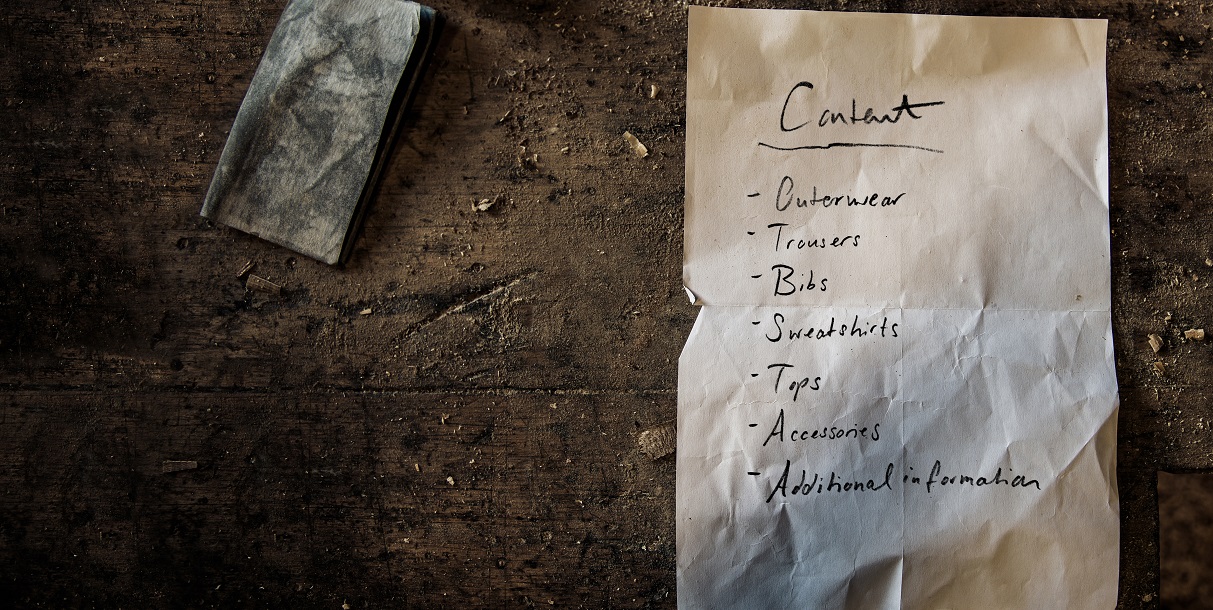 Content
- Outerwear
- Trousers
- Bibs
- Sweatshirts
- Tops
- Accessories
- Additional information